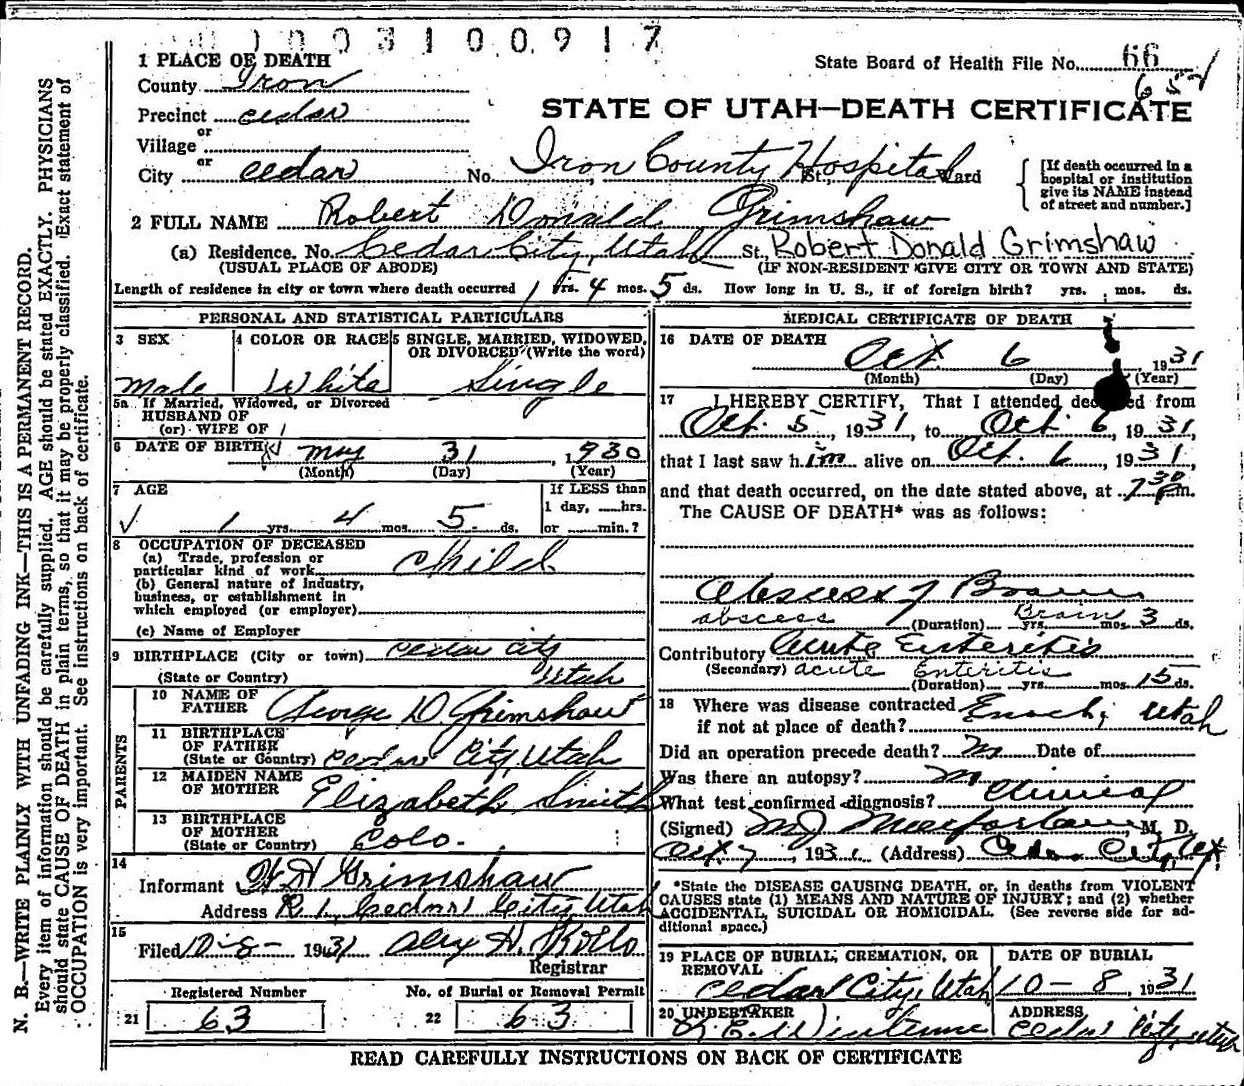 0 1 0 0 3 1 0 0 9 1 7
1 PLACE OF DEATH
State Board of Health File No. 66
657
County Iron
STATE OF UTAH—DEATH CERTIFICATE
Precinct cedar
or
Village
or
City cedar No. Iron County Hospital St., Ward
[If death occurred in a hospital or institution give its NAME instead of street and number.]
2 FULL NAME Robert Donald Grimshaw
(a) Residence. No. Cedar City, Utah St. Robert Donald Grimshaw
(USUAL PLACE OF ABODE) (IF NON-RESIDENT GIVE CITY OR TOWN AND STATE)
Length of residence in city or town where death occurred 1 yrs. 4 mos. 5 ds. How long in U. S., if of foreign birth? yrs. mos. ds.
PERSONAL AND STATISTICAL PARTICULARS
3 SEX 4 COLOR OR RACE 5 SINGLE, MARRIED, WIDOWED, OR DIVORCED (Write the word)
Male White Single
5a If Married, Widowed, or Divorced
HUSBAND OF
(or) WIFE OF
6 DATE OF BIRTH May 31, 1930
(Month) (Day) (Year)
7 AGE If LESS than
1 day, hrs.
1 yrs. 4 mos. 5 ds. or min.?
8 OCCUPATION OF DECEASED
(a) Trade, profession or
particular kind of work child
(b) General nature of industry,
business, or establishment in
which employed (or employer)
(c) Name of Employer
9 BIRTHPLACE (City or town) cedar city
(State or Country) Utah
PARENTS
10 NAME OF
FATHER George D. Grimshaw
11 BIRTHPLACE
OF FATHER
(State or Country) cedar City, Utah
12 MAIDEN NAME
OF MOTHER Elizabeth Smith
13 BIRTHPLACE
OF MOTHER
(State or Country) Colo.
14
Informant Grimshaw
Address R 1, Cedar City, Utah
15
Filed 10-8- 1931 Alex H. Rollo
Registrar
Registered Number No. of Burial or Removal Permit
21 63 22 63
MEDICAL CERTIFICATE OF DEATH
16 DATE OF DEATH
Oct. 6 1931
(Month) (Day) (Year)
17 I HEREBY CERTIFY, That I attended deceased from
Oct. 5, 1931, to Oct. 6, 1931,
that I last saw him alive on Oct. 6, 1931,
and that death occurred, on the date stated above, at 7 30 pm.
The CAUSE OF DEATH* was as follows:
Abscess of Brain
abscess Brain
(Duration) yrs. mos. 3 ds.
Contributory Acute Enteritis
(Secondary) acute Enteritis
(Duration) yrs. mos. 15 ds.
18 Where was disease contracted
if not at place of death? Enoch, Utah
Did an operation precede death? no Date of
Was there an autopsy? no
What test confirmed diagnosis? Clinical
(Signed) M J Macfarlane, M. D.
Oct 7, 1931 (Address) Cedar City, Ut.
*State the DISEASE CAUSING DEATH, or, in deaths from VIOLENT
CAUSES state (1) MEANS AND NATURE OF INJURY; and (2) whether
ACCIDENTAL, SUICIDAL OR HOMICIDAL. (See reverse side for ad-
ditional space.)
19 PLACE OF BURIAL, CREMATION, OR REMOVAL DATE OF BURIAL
cedar City, Utah 10-8, 1931
20 UNDERTAKER ADDRESS
cedar City, Utah
READ CAREFULLY INSTRUCTIONS ON BACK OF CERTIFICATE
N. B.—WRITE PLAINLY WITH UNFADING INK—THIS IS A PERMANENT RECORD.
Every item of information should be carefully supplied. AGE should be stated EXACTLY. PHYSICIANS
should state CAUSE OF DEATH in plain terms, so that it may be properly classified. Exact statement of
OCCUPATION is very important. See instructions on back of certificate.